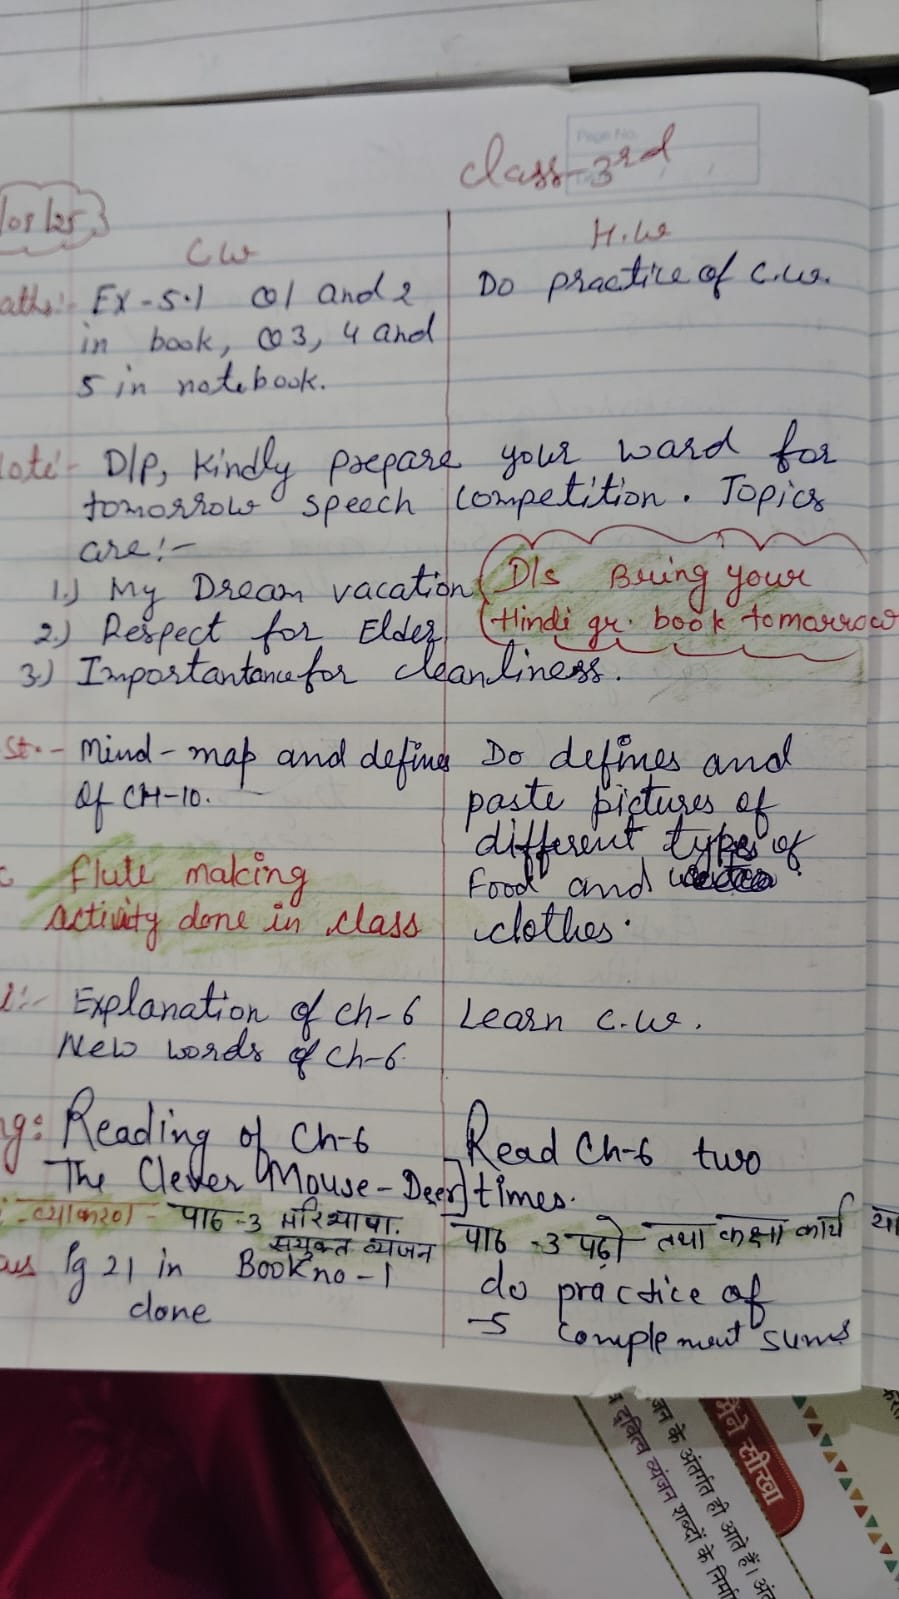 Page No.
Class-3rd
/08/25
C.W
H.W
aths:- Ex-5.1 Q1 and 2
in book, Q3, 4 and
5 in notebook.
Do practice of C.W.
Note:- D/P, Kindly prepare your ward for
tomorrow speech competition. Topics
are:-
1.) My Dream vacation
2.) Respect for Elder
3.) Importantance for cleanliness.
D/s Bring your
Hindi gr. book tomorrow
St.- Mind-map and defines
of CH-10.
Do defines and
paste pictures of
different types of
Food and
clothes.
Flute making
activity done in class
Explanation of ch-6
New words of ch-6.
Learn C.W.
ng: Reading of Ch-6
The Clever Mouse-Deer
Read Ch-6 two
times.
व्याकरण - पाठ-3 परिभाषा,
संयुक्त व्यंजन
पाठ -3 पढ़ो तथा कक्षा कार्य
Pg 21 in Book no-1
done
do practice of
-5 complement sums
मैंने सीखा
के अंतर्गत ही आते हैं।
द्वित्व व्यंजन शब्दों के